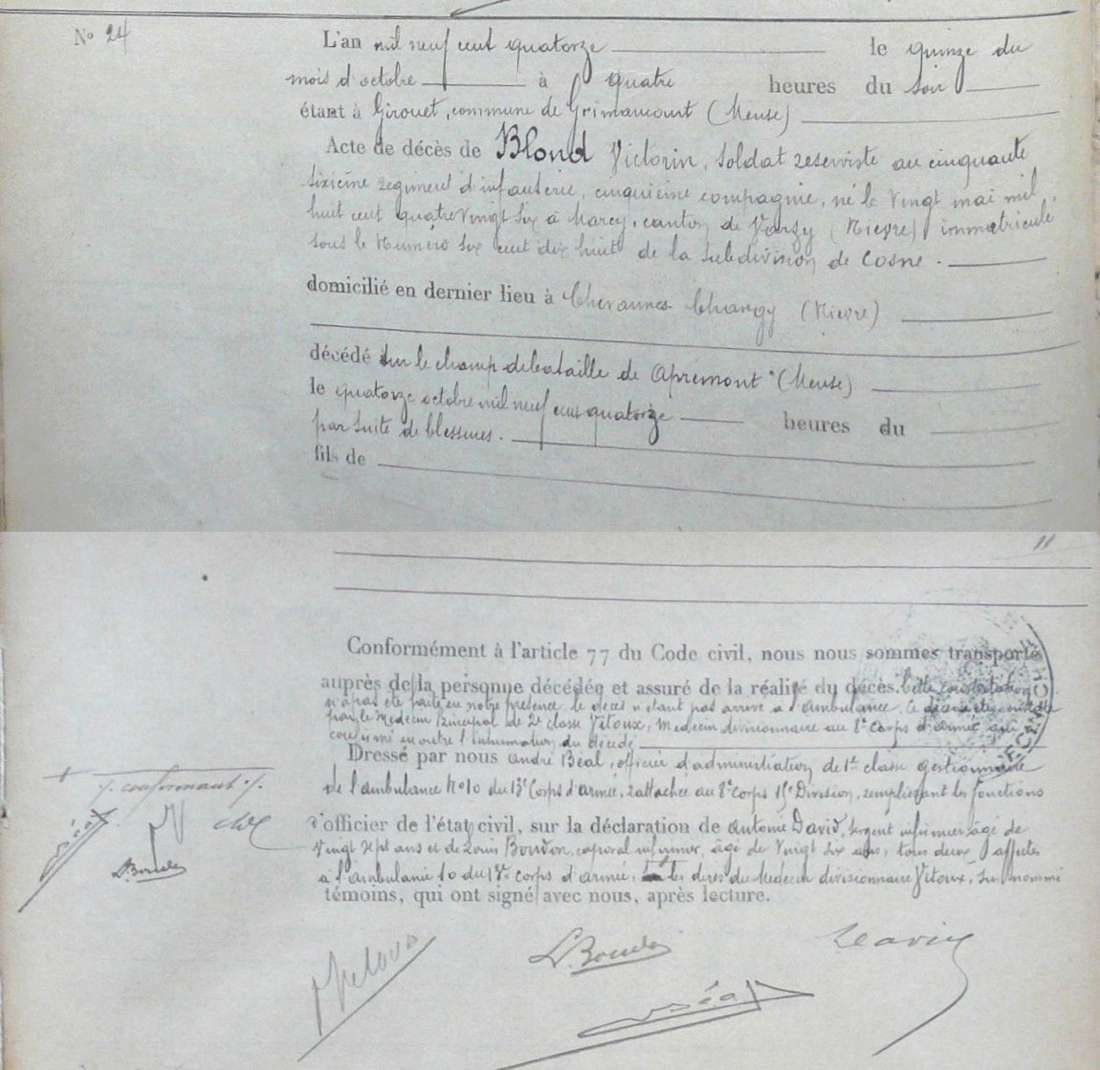 N° 24
L'an mil neuf cent quatorze le quinze du
mois d'octobre à quatre heures du soir
étant à Girouet, commune de Grimaucourt (Meuse)
Acte de décès de Blond Victorin, soldat reserviste au cinquante
sixième regiment d'infanterie, cinquième compagnie, né le vingt mai mil
huit cent quatre vingt six à Marcy, canton de Varzy (Nièvre) immatriculé
sous le Numéro six cent dix huit de la subdivision de Cosne.
domicilié en dernier lieu à Chevannes Changy (Nièvre)
décédé sur le champ de bataille de Apremont (Meuse)
le quatorze octobre mil neuf cent quatorze heures du
par suite de blessures.
fils de
11
Conformément à l'article 77 du Code civil, nous nous sommes transporté
auprès de la personne décédée et assuré de la réalité du décès. Cette constatation
n'a pas été faite en notre présence le décès n'étant pas arrivé à l'ambulance. Ce décès a été
par le Medecin Principal de 2e classe Vitoux, Medecin divisionnaire au 8e Corps d'armée qui
confirmé en outre l'inhumation du décédé
Dressé par nous André Béal, officier d'administration de 1re classe gestionnaire
de l'ambulance N°10 du 13e Corps d'armée, rattachée au 8e corps 15e Division, remplissant les fonctions
d'officier de l'état civil, sur la déclaration de Antoine David, sergent infirmier âgé de
vingt sept ans et de Louis Bourdon, caporal infirmier, âgé de vingt six ans, tous deux affectés
à l'ambulance 10 du 13e Corps d'armée, les dires du Médecin divisionnaire Vitoux, susnommé
témoins, qui ont signé avec nous, après lecture.
Béal